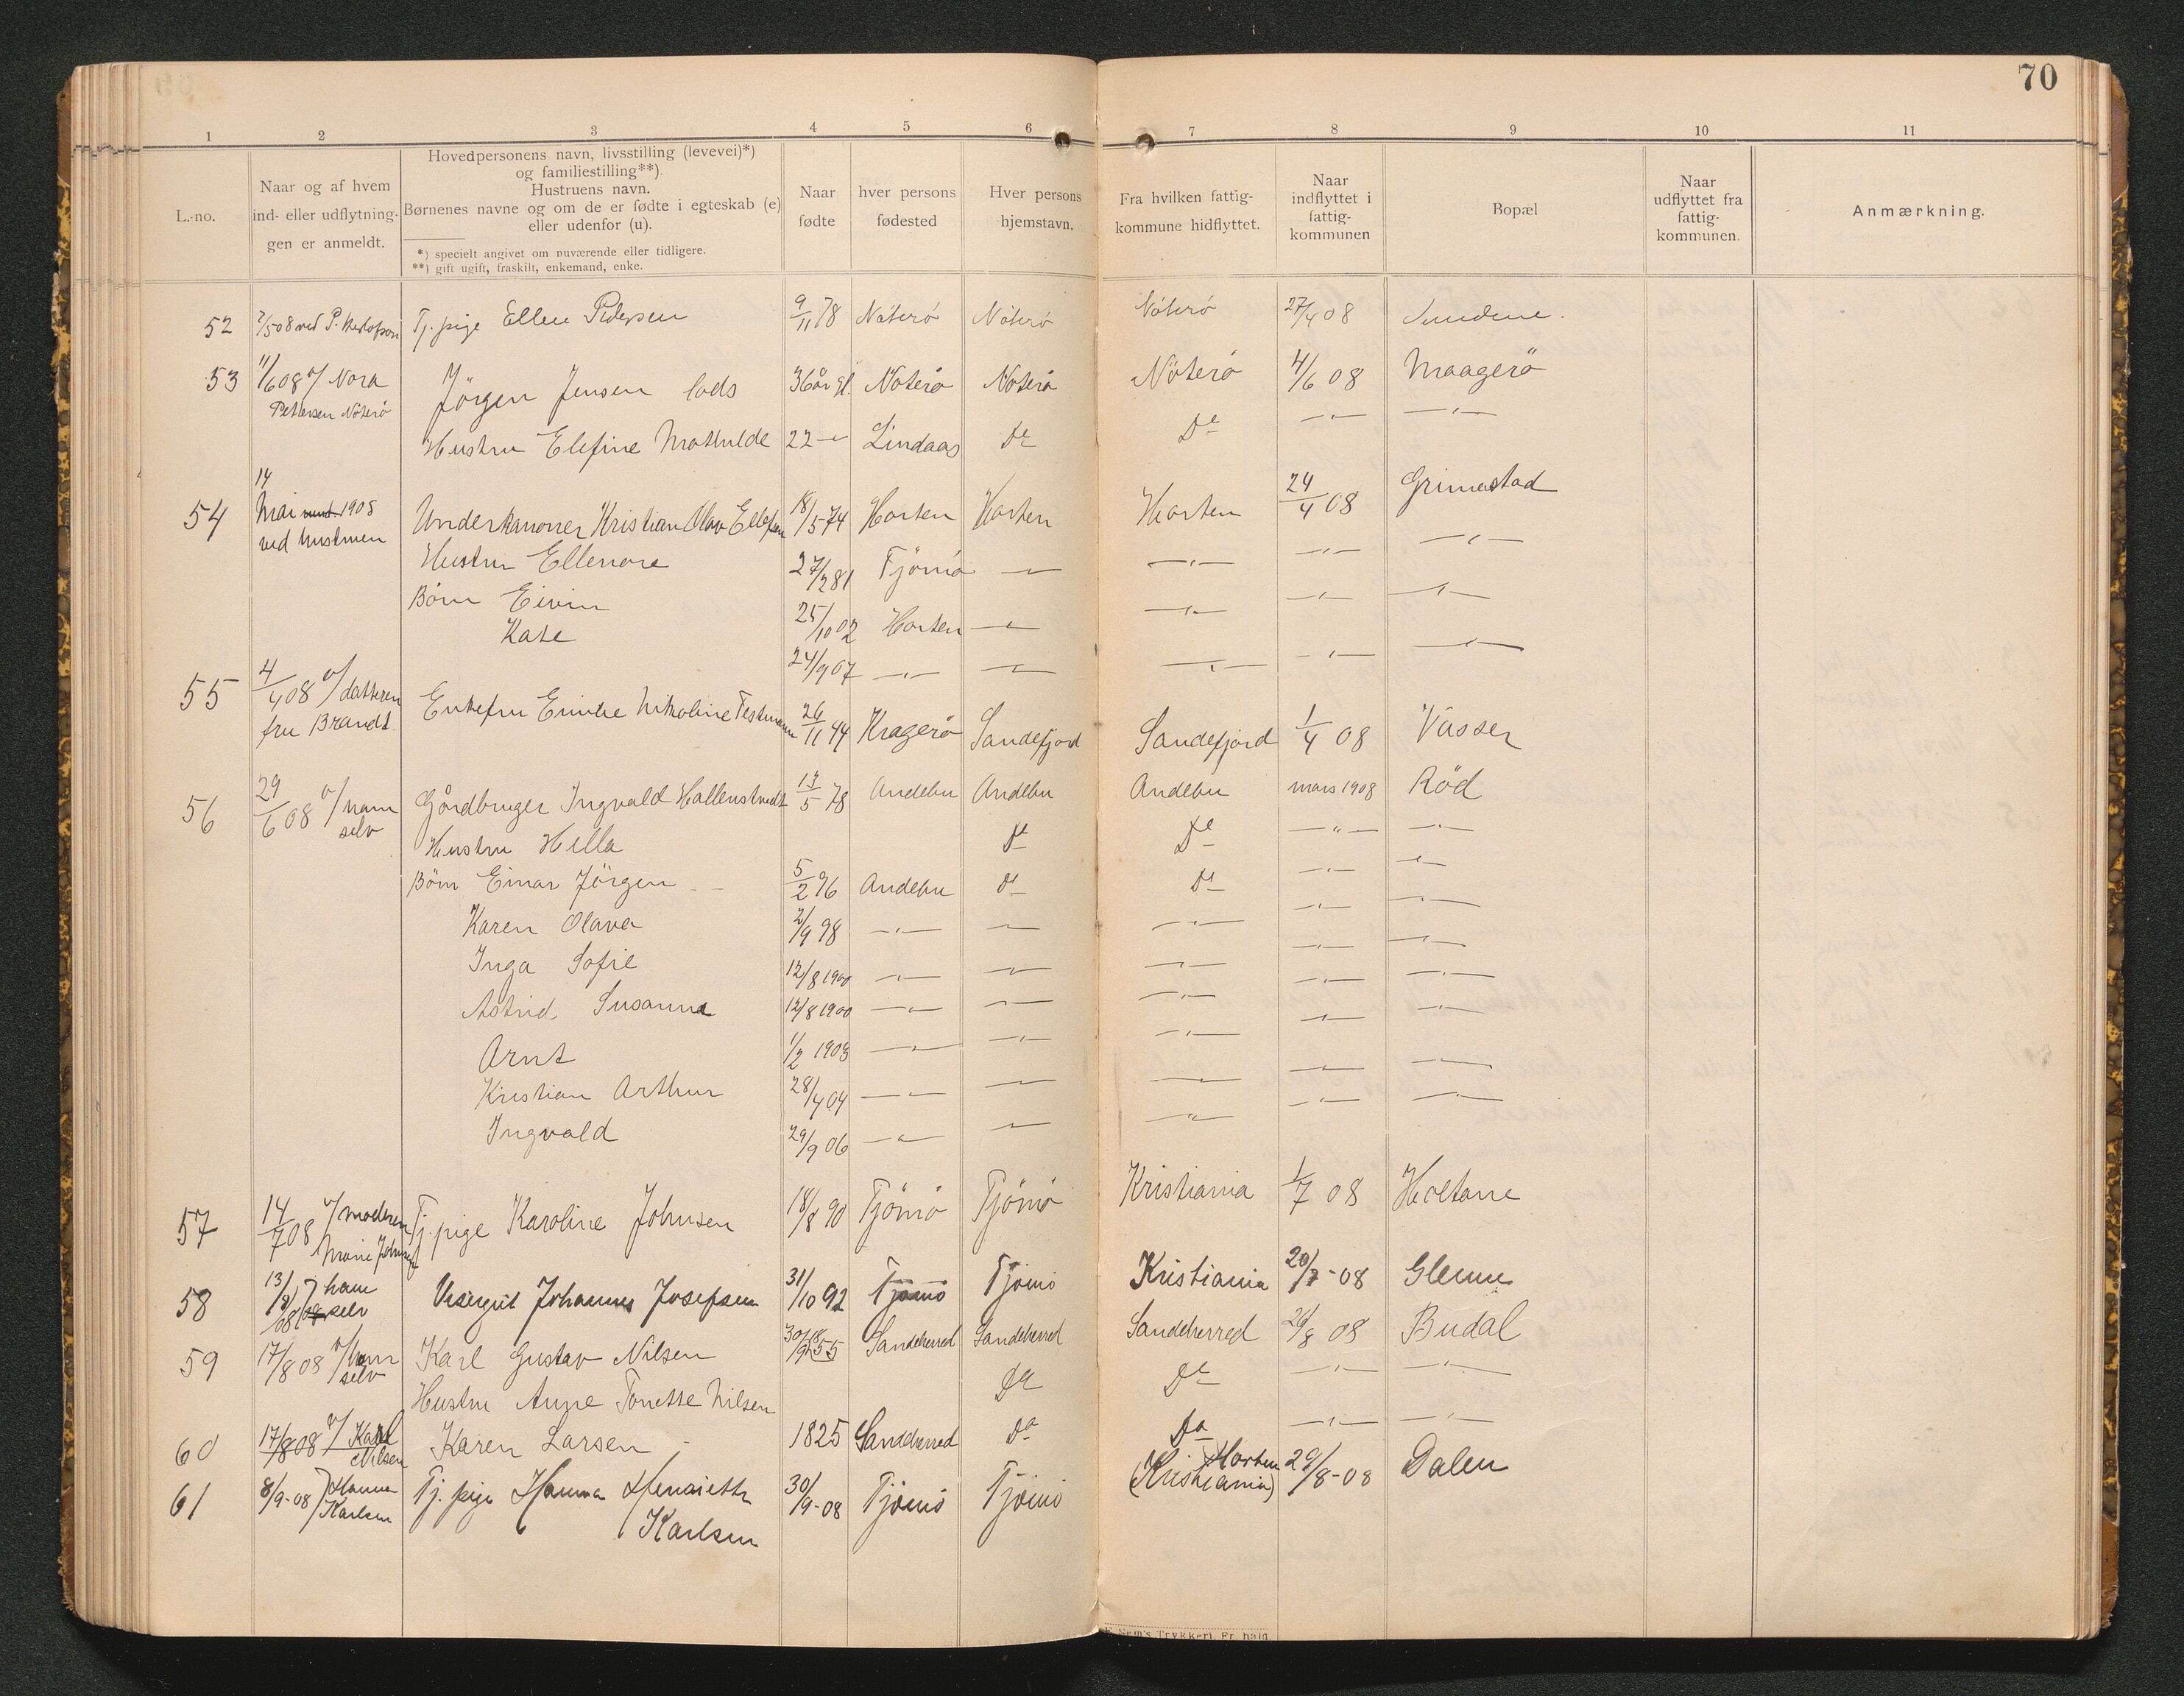 70
1 2 3 4 5 6 7 8 9 10 11
L.-no.
Naar og af hvem
ind- eller udflytnin-
gen er anmeldt.
Hovedpersonens navn, livsstilling (levevei)*)
og familiestilling**).
Hustruens navn.
Børnenes navne og om de er fødte i egteskab (e)
eller udenfor (u).
*) specielt angivet om nuværende eller tidligere.
**) gift ugift, fraskilt, enkemand, enke.
Naar
fødte
hver persons
fødested
Hver persons
hjemstavn.
Fra hvilken fattig-
kommune hidflyttet.
Naar
indflyttet i
fattig-
kommunen
Bopæl
Naar
udflyttet fra
fattig-
kommunen.
Anmærkning.
52 7/5 08 ved P. Tj. pige Ellen Pedersen 9/11 78 Nöterö Nöterö Nöterö 27/4 08
53 11/6 08 v/ Nora Jörgen Jensen lods 36 år gl. Nöterö Nöterö Nöterö 4/6 08 Maagerö
Pettersen Nöterö
Hustru Elefine Mathilde 22 -"- Lindaas Do Do -"- -"-
14
54 Mai 1908 Underkanoner Kristian Olav Ellefsen 18/5 74 Horten Horten Horten 24/4 08 Grimestad
ved hustruen
Hustru Ellenore 27/2 81 Tjömö -"- -"- -"- -"-
Börn Eivin 25/10 02 Horten -"- -"- -"- -"-
Kate 24/9 07 -"- -"- -"- -"- -"-
55 4/4 08 v/ datteren Enkefru Emilie Nikoline Testmann 26/11 44 Kragerö Sandefjord Sandefjord 1/4 08 Vasser
fru Brandt.
56 29/6 08 v/ ham Gårdbruger Ingvald Hallenstvedt 13/5 78 Andebu Andebu Andebu mars 1908 Röd
selv
Hustru Hilla Do Do -"- -"-
Börn Einar Jörgen 5/2 96 Andebu Do Do -"- -"-
Karen Olava 2/9 98 -"- -"- -"- -"- -"-
Inga Sofie 12/8 1900 -"- -"- -"- -"- -"-
Astrid Susanna 12/8 1900 -"- -"- -"- -"- -"-
Arnt 1/2 1903 -"- -"- -"- -"- -"-
Kristian Arthur 28/4 04 -"- -"- -"- -"- -"-
Ingvald 29/9 06 -"- -"- -"- -"- -"-
57 14/7 08 v/ moderen Tj. pige Karoline Johnsen 18/8 90 Tjömö Tjömö Kristiania 1/7 08 Holtane
Marie Johnsen
58 13/8 08 ham selv Visergut Johannes Josefsen 31/10 92 Tjömö Tjömö Kristiania 20/7-08 Glenne
59 17/8 08 v/ ham Karl Gustav Nilsen 30/9 55 Sandeherred Sandeherred Sandeherred 26/8 08 Budal
selv
Hustru Anne Tonette Nilsen Do Do -"- -"-
60 17/8 08 v/ Karl Karen Larsen 1825 Sandeherred Do Do -"- -"-
Nilsen
61 8/9-08 Hanna Tj. pige Hanna Henriette 30/9-08 Tjömö Tjömö Horten (Kristiania) 29/8-08 Dalen
Karlsen Karlsen